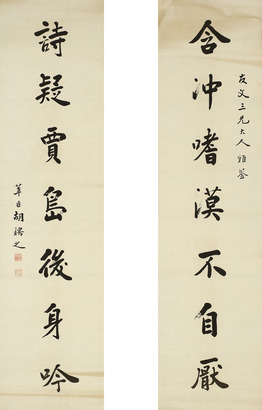 友文三兄大人雅鉴
含冲嗜漠不自厭
詩疑賈島後身吟
胡